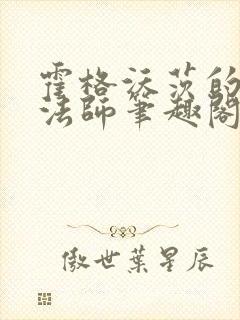 霍格沃茨的
法師筆趣閣
傲世葉星辰